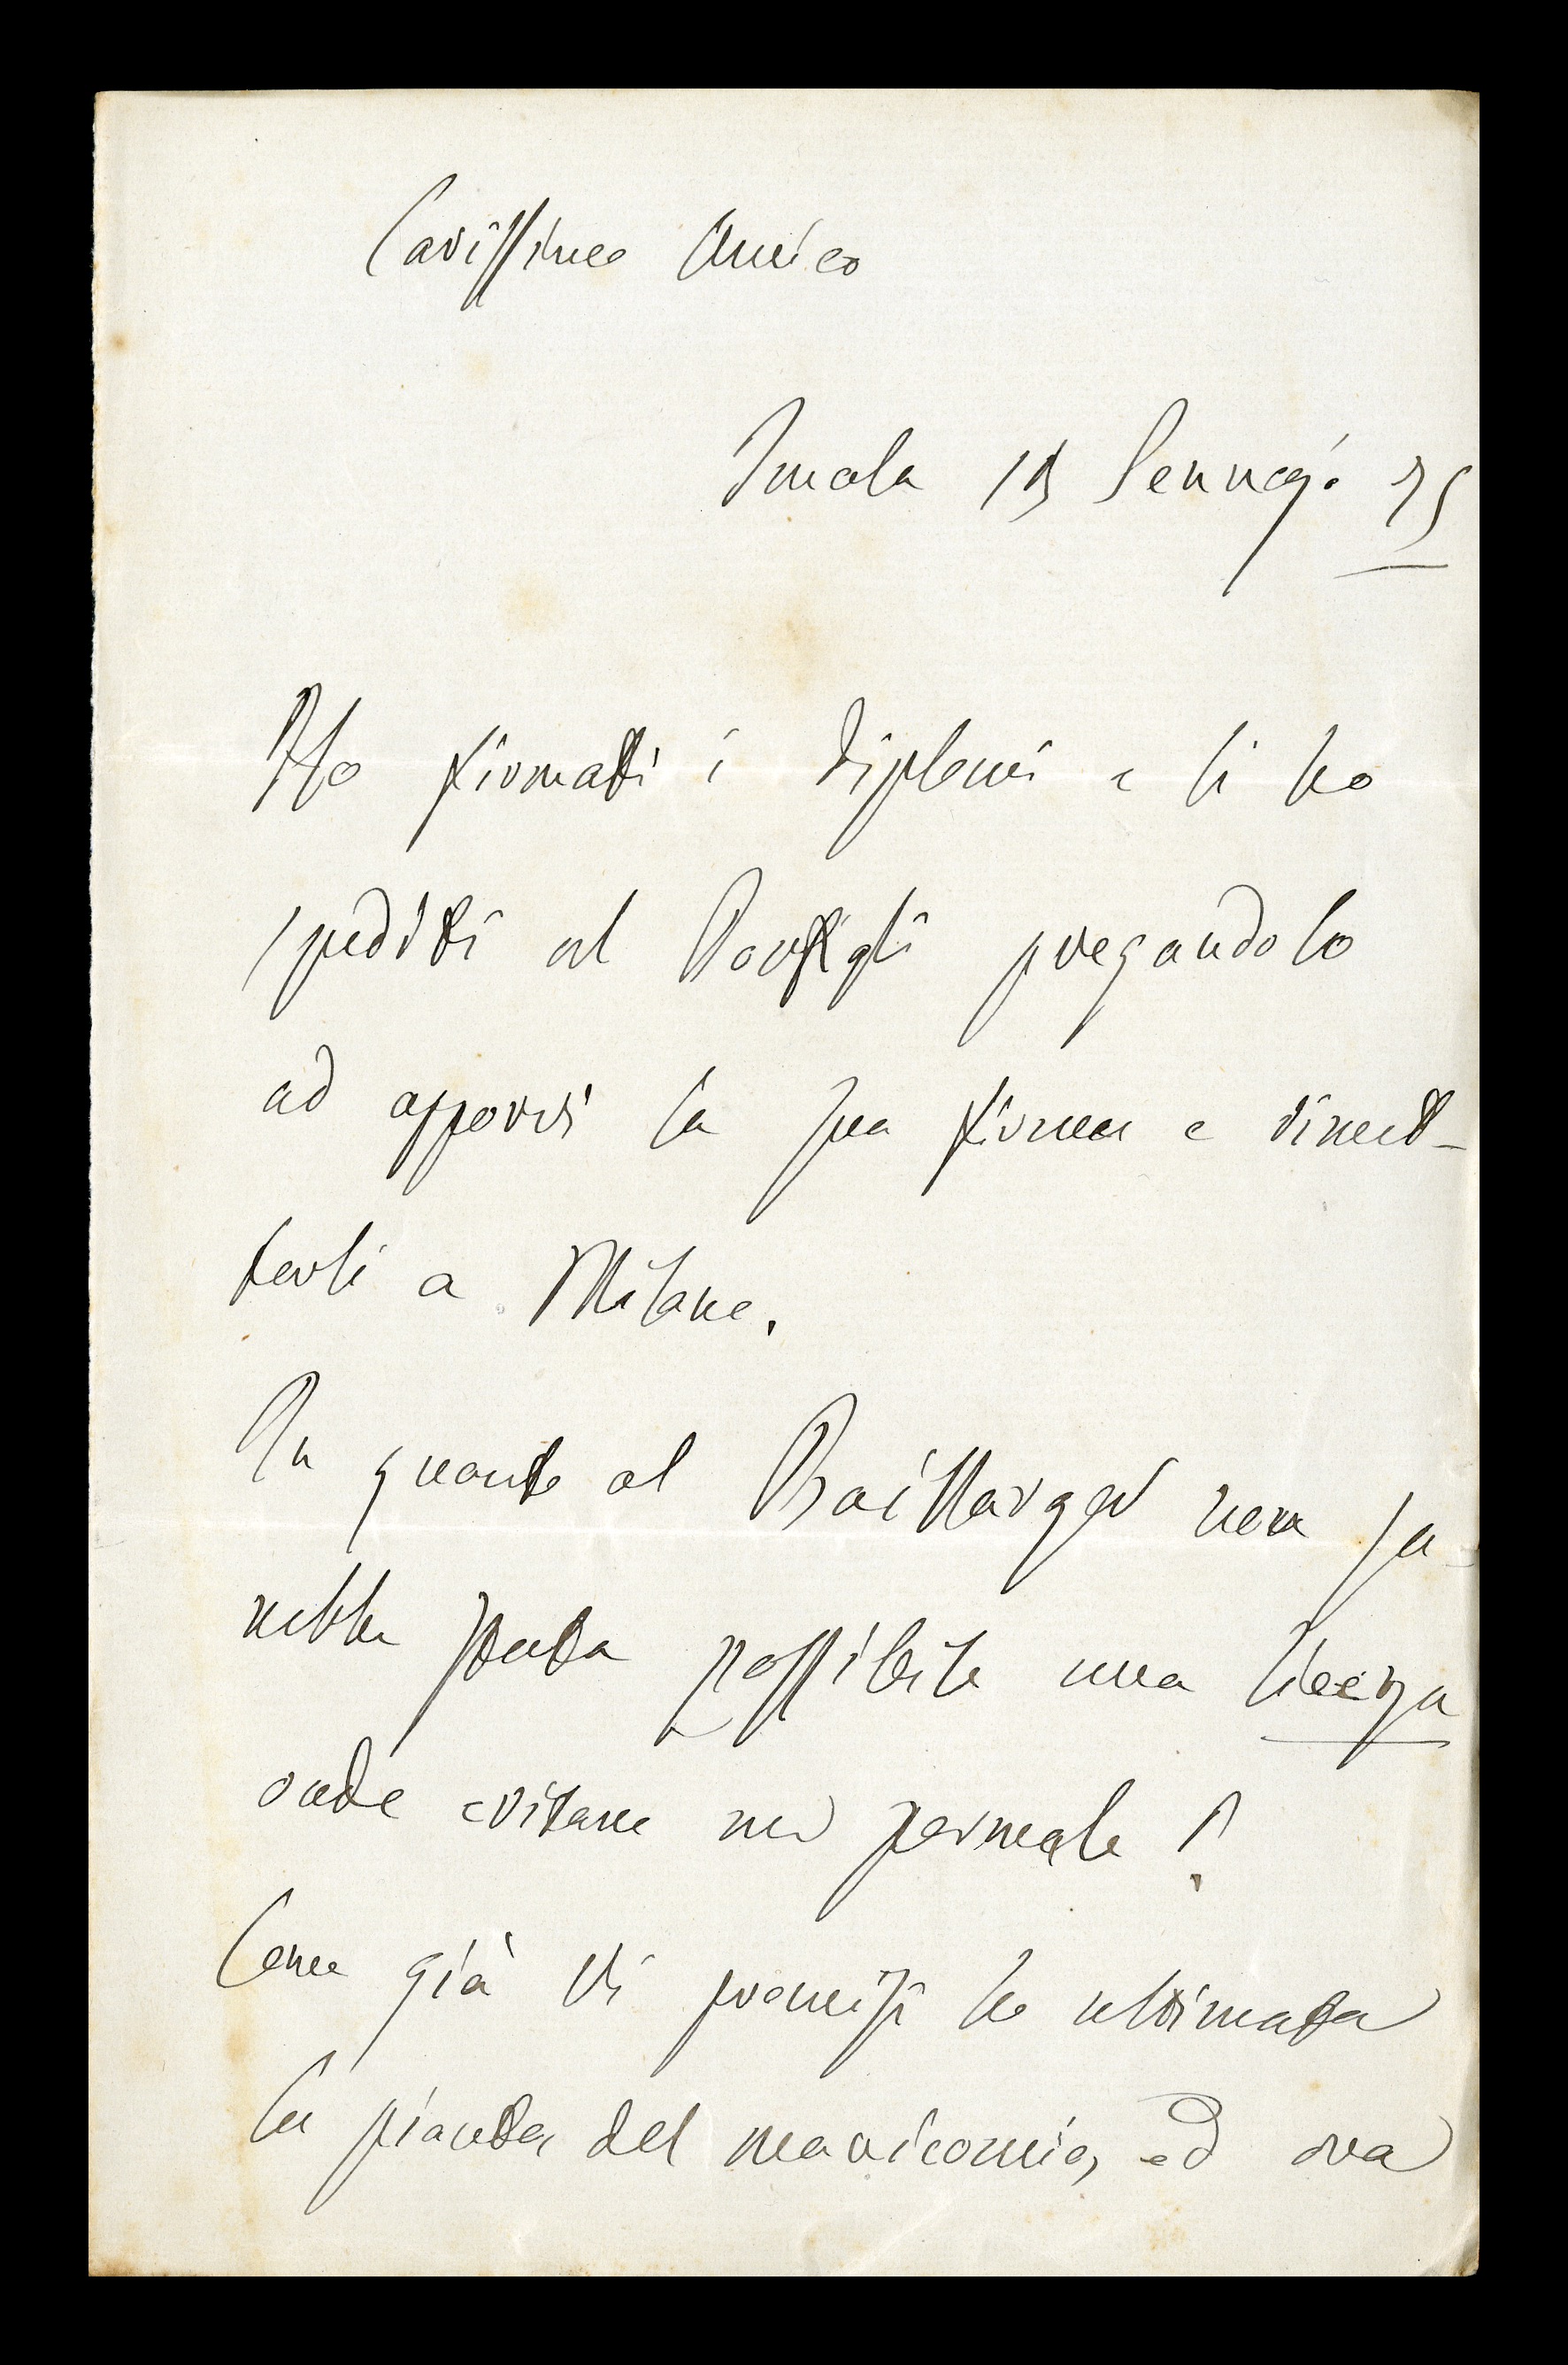 Carissimo Amico
Imola 13 Gennajo 75
Ho firmati i diplomi e li ho
spediti al Porfigli pregandolo
ad apporvi la sua firma e rimet-
terli a Milano.
In quanto al Baillarger non sa-
rebbe stata possibile una
onde evitare un permale?
Come già Vi promisi ho ultimata
la pianta del manicomio, ed ora